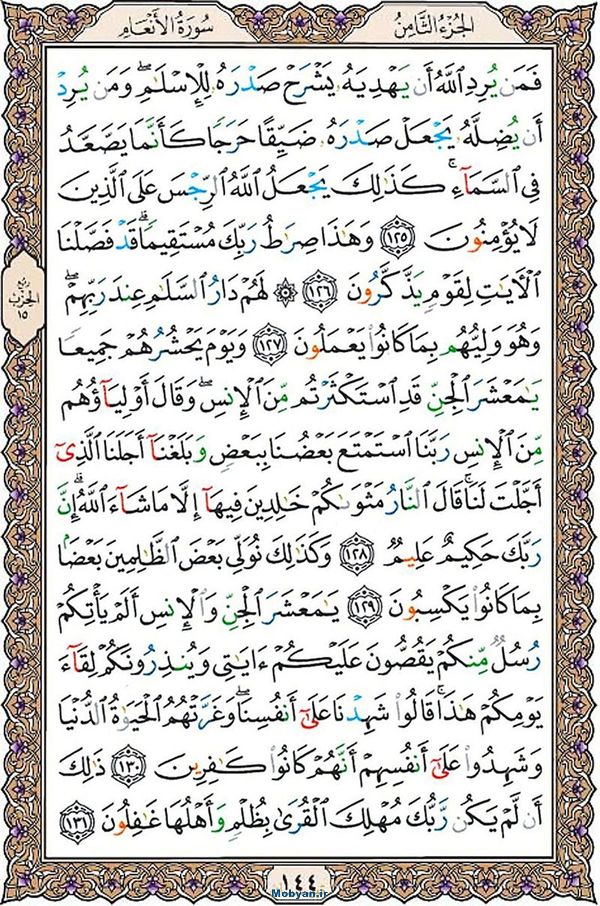 الجُزْءُ الثَّامِنُ
سُورَةُ الأَنْعَامِ
فَمَن يُرِدِ ٱللَّهُ أَن يَهْدِيَهُۥ يَشْرَحْ صَدْرَهُۥ لِلْإِسْلَٰمِۖ وَمَن يُرِدْ
أَن يُضِلَّهُۥ يَجْعَلْ صَدْرَهُۥ ضَيِّقًا حَرَجًا كَأَنَّمَا يَصَّعَّدُ
فِى ٱلسَّمَآءِۚ كَذَٰلِكَ يَجْعَلُ ٱللَّهُ ٱلرِّجْسَ عَلَى ٱلَّذِينَ
لَا يُؤْمِنُونَ ١٢٥ وَهَٰذَا صِرَٰطُ رَبِّكَ مُسْتَقِيمًاۗ قَدْ فَصَّلْنَا
ٱلْءَايَٰتِ لِقَوْمٍ يَذَّكَّرُونَ ١٢٦ ۞ لَهُمْ دَارُ ٱلسَّلَٰمِ عِندَ رَبِّهِمْۖ
وَهُوَ وَلِيُّهُم بِمَا كَانُوا۟ يَعْمَلُونَ ١٢٧ وَيَوْمَ يَحْشُرُهُمْ جَمِيعًا
يَٰمَعْشَرَ ٱلْجِنِّ قَدِ ٱسْتَكْثَرْتُم مِّنَ ٱلْإِنسِۖ وَقَالَ أَوْلِيَآؤُهُم
مِّنَ ٱلْإِنسِ رَبَّنَا ٱسْتَمْتَعَ بَعْضُنَا بِبَعْضٍ وَبَلَغْنَآ أَجَلَنَا ٱلَّذِىٓ
أَجَّلْتَ لَنَاۚ قَالَ ٱلنَّارُ مَثْوَىٰكُمْ خَٰلِدِينَ فِيهَآ إِلَّا مَا شَآءَ ٱللَّهُۗ إِنَّ
رَبَّكَ حَكِيمٌ عَلِيمٌ ١٢٨ وَكَذَٰلِكَ نُوَلِّى بَعْضَ ٱلظَّٰلِمِينَ بَعْضًۢا
بِمَا كَانُوا۟ يَكْسِبُونَ ١٢٩ يَٰمَعْشَرَ ٱلْجِنِّ وَٱلْإِنسِ أَلَمْ يَأْتِكُمْ
رُسُلٌ مِّنكُمْ يَقُصُّونَ عَلَيْكُمْ ءَايَٰتِى وَيُنذِرُونَكُمْ لِقَآءَ
يَوْمِكُمْ هَٰذَاۚ قَالُوا۟ شَهِدْنَا عَلَىٰٓ أَنفُسِنَاۖ وَغَرَّتْهُمُ ٱلْحَيَوٰةُ ٱلدُّنْيَا
وَشَهِدُوا۟ عَلَىٰٓ أَنفُسِهِمْ أَنَّهُمْ كَانُوا۟ كَٰفِرِينَ ١٣٠ ذَٰلِكَ
أَن لَّمْ يَكُن رَّبُّكَ مُهْلِكَ ٱلْقُرَىٰ بِظُلْمٍ وَأَهْلُهَا غَٰفِلُونَ ١٣١
ربع
الحزب
١٥
١٤٤
Mobyan.ir